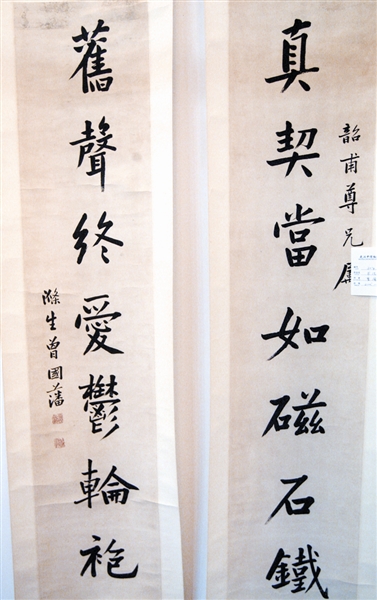 真契當如磁石鐵
韶甫尊兄屬
舊聲終愛鬱輪袍
滌生曾國藩